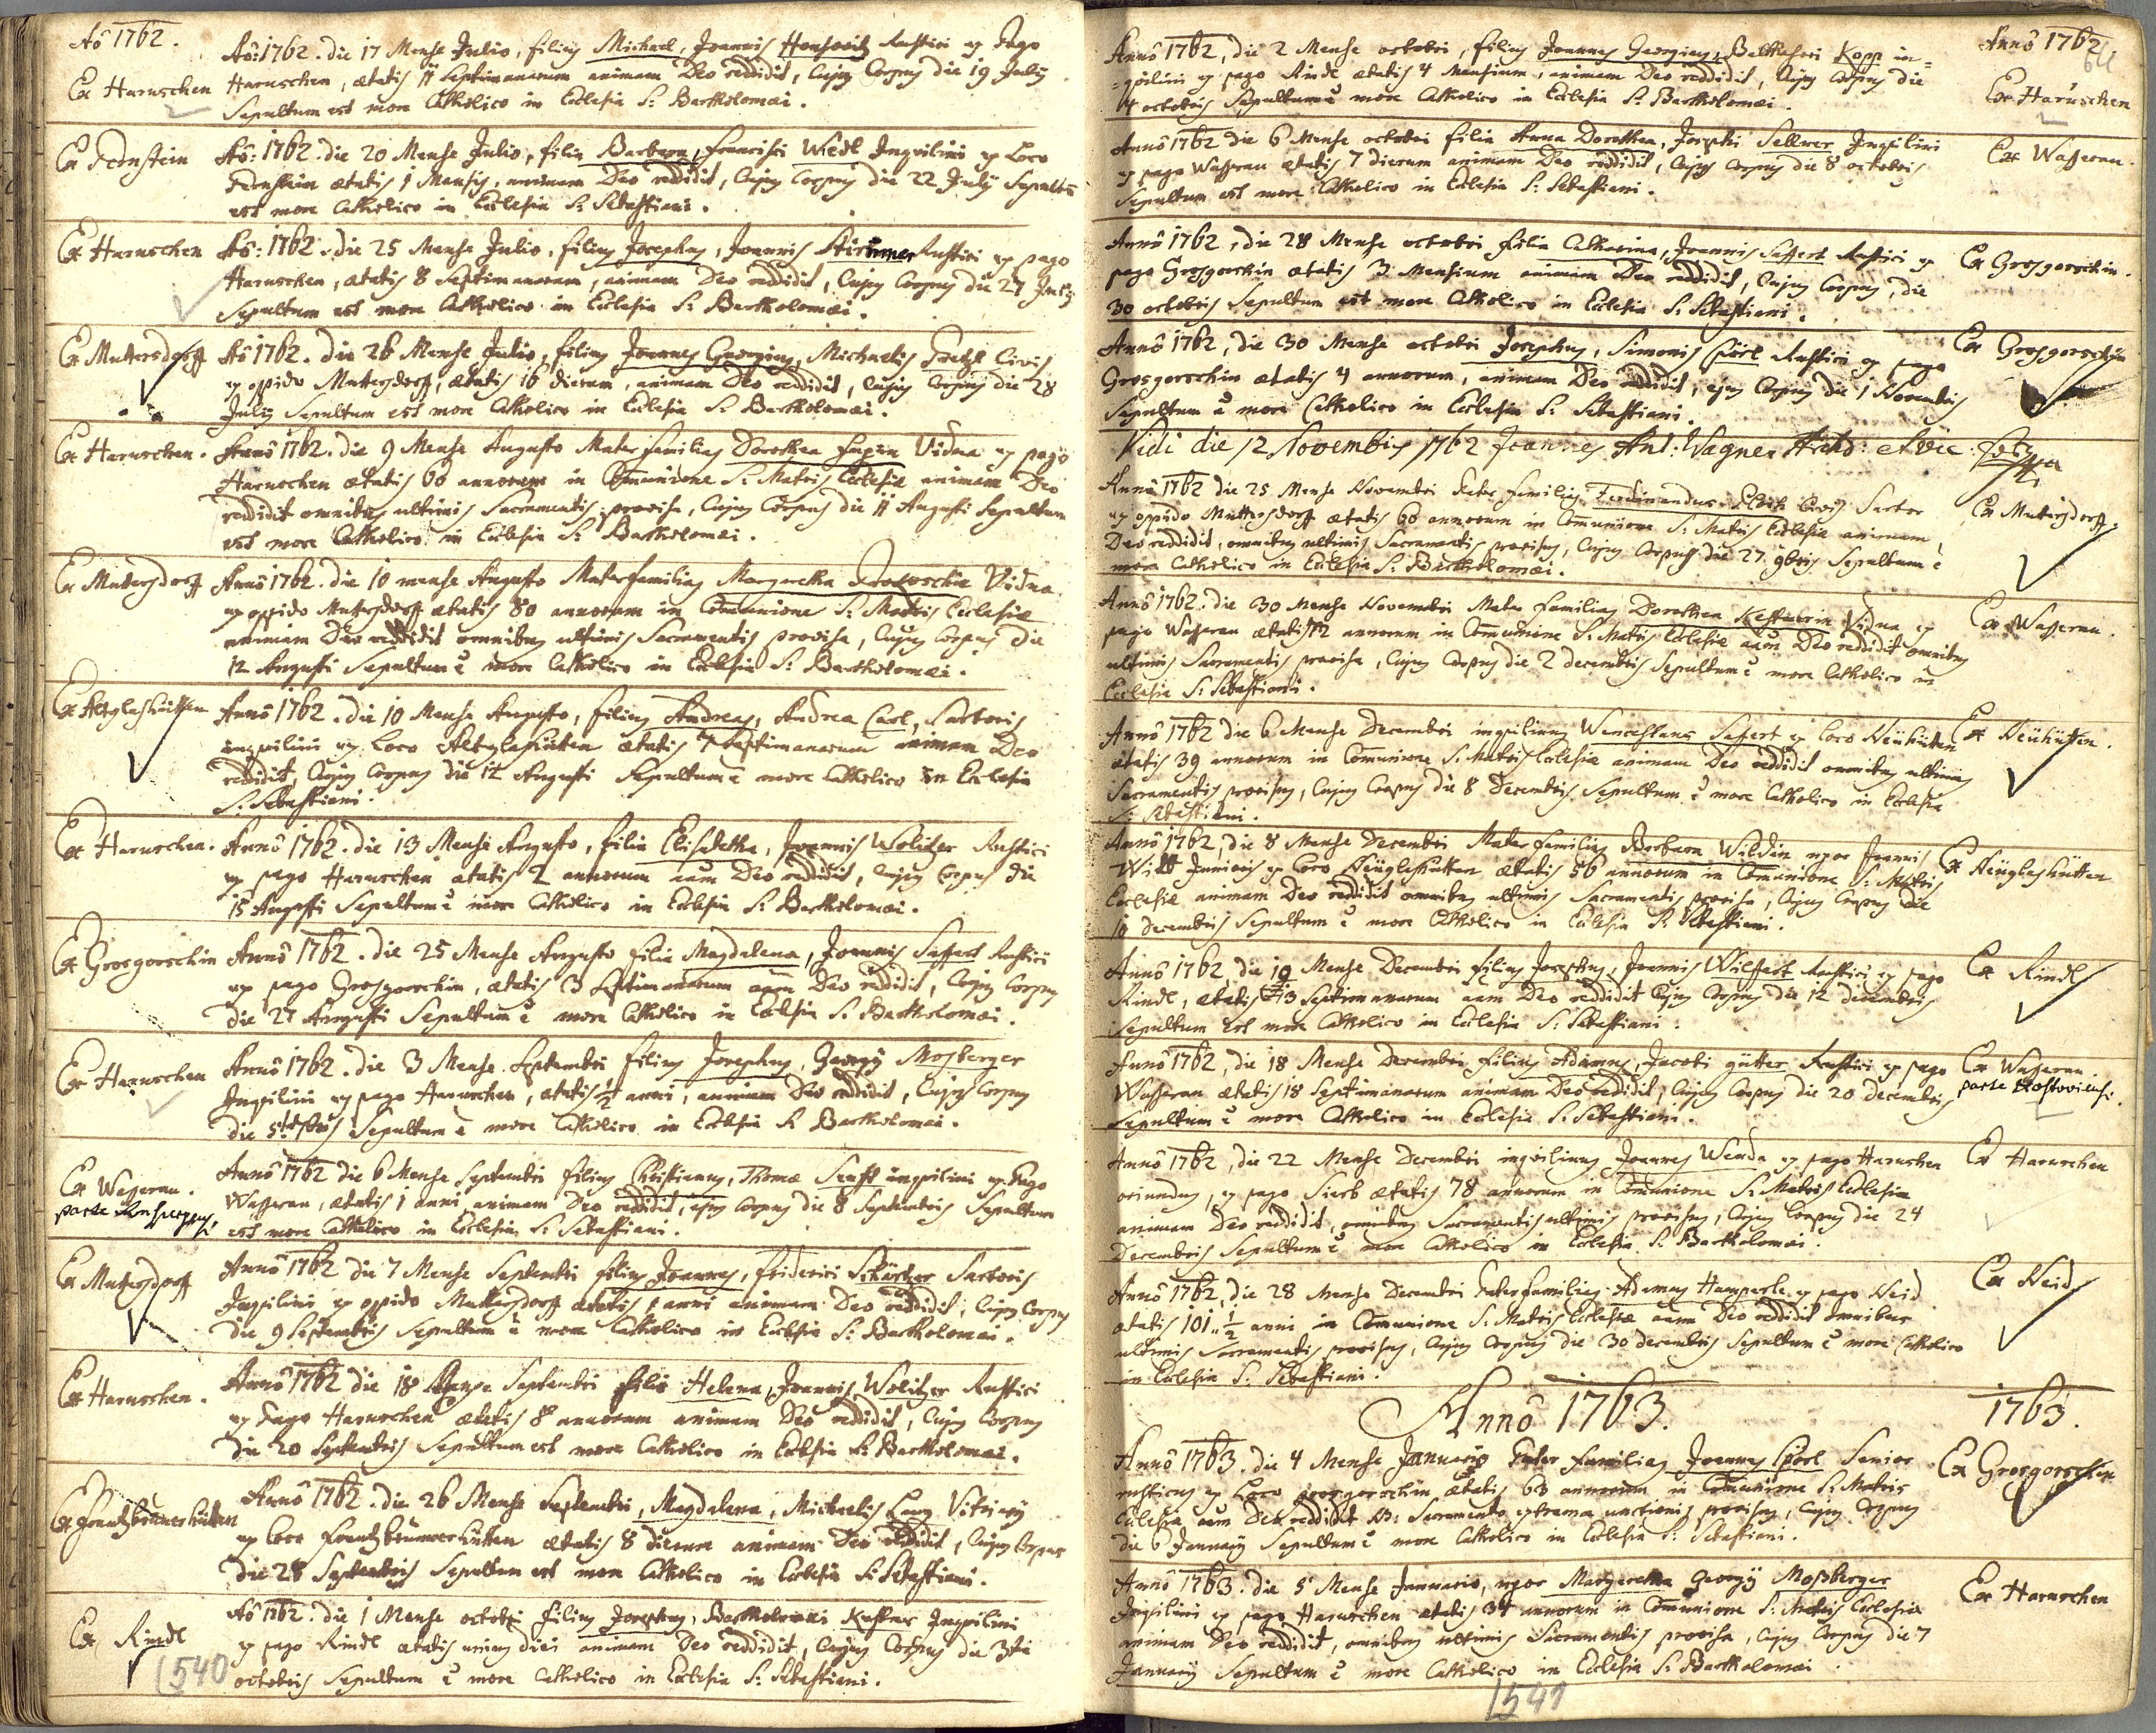 Aõ 1762.
Ex Haruschen
Aõ: 1762. die 17 Mense Julio, filius Michael, Joannis Rustici ex Pago
Haruschen, ætatis 11 Septimanarum animam Deo reddidit, Cujus Corpus die 19 July
Sepultum est more Catholico in Ecclesia S: Bartholomæi.
Ex
Aõ: 1762. die 20 Mense Julio, filia Barbara, Francisci Wiedl Inquilini ex Loco
ætatis 1 Mensis, animam Deo reddidit, Cujus Corpus die 22 July Sepultũ
est more Catholico in Ecclesia S: Sebastiani.
Ex Haruschen
Aõ: 1762. die 25 Mense Julio, filius Josephus, Joannis Rustici ex pago
Haruschen, ætatis 8 Septimanarum, animam Deo reddidit, Cujus Corpus die 27 July
Sepultum est more Catholico in Ecclesia S: Bartholomæi.
Ex Muttersdorff
Aõ 1762. die 26 Mense Julio, filius Joannes Georgius, Michaelis Civis
ex oppido Muttersdorff, ætatis 16 dierum, animam Deo reddidit, Cujus Corpus die 28
July Sepultum est more Catholico in Ecclesia S: Bartholomæi.
Ex Haruschen.
Annô 1762. die 9 Mense Augusto Mater familias Dorothea Vidua ex pago
Haruschen ætatis 60 annorum in Comunione S: Matris Ecclesiæ animam Deo
reddidit omnibus ultimis Sacramentis provisa, Cujus Corpus die 11 Augusti Sepultum
est more Catholico in Ecclesia S: Bartholomæi.
Ex Muttersdorff
Annô 1762. die 10 mense Augusto Materfamilias Margaretha Vidua
ex oppido Muttersdorff ætatis 80 annorum in Comunione S: Matris Ecclesiæ
animam Deo reddidit omnibus ultimis Sacramentis provisa, Cujus Corpus die
12 Augusti Sepultum ẽ more Catholico in Ecclesia S: Bartholomæi.
Ex Altglashütten
Annô 1762. die 10 Mense Augusto, filius Andreas, Andrea Carl, Sartoris
inquilini ex Loco Altglashütten ætatis 7 Septimanarum animam Deo
reddidit, Cujus Corpus die 12 Augusti Sepultum ẽ more Catholico in Ecclesia
S: Sebastiani.
Ex Haruschen.
Annô 1762. die 13 Mense Augusto, filia Elisabetha, Joannis Wolitzer Rustici
ex pago Haruschen ætatis 2 annorum aam Deo reddidit, Cujus Corpus die
15 Augusti Sepultum ẽ more Catholico in Ecclesia S: Bartholomæi.
Ex Grosgorschin
Annô 1762. die 25 Mense Augusto filia Magdalena, Joannis Seffert Rustici
ex pago Grosgorschin, ætatis 3 Septimanarum aam Deo reddidit, Cujus Corpus
die 27 Augusti Sepultum ẽ more Catholico in Ecclesia S: Bartholomæi.
Ex Haruschen
Annô 1762. die 3 Mense Septembri filius Josephus, Georgÿ Mosberger
Inquilini ex pago Haruschen, ætatis 1/2 anni, animam Deo reddidit, Cujus Corpus
die 5 Sepultum ẽ more Catholico in Ecclesia S: Bartholomæi.
Ex Wasserau.
parte
Annô 1762 die 6 Mense Septembri filius Christianus, Thomæ Senft inquilini ex Pago
Wasserau, ætatis 1 anni animam Deo reddidit, ejus Corpus die 8 Septembris Sepultum
est more Catholico in Ecclesia S: Sebastiani.
Ex Muttersdorff
Annô 1762 die 7 Mense Septembri filius Joannes, Friderici Sartoris
Inquilini ex oppido Muttersdorff ætatis 1 anni animam Deo reddidit, Cujus Corpus
die 9 Septembris Sepultum ẽ more Catholico in Ecclesia S: Bartholomæi.
Ex Haruschen.
Annô 1762 die 18 Mense Septembri filia Helena, Joannis Wolitzer Rustici
ex Pago Haruschen ætatis 8 annorum animam Deo reddidit, Cujus Corpus
die 20 Septembris Sepultum est more Catholico in Ecclesia S: Bartholomæi.
Ex Frantzbrunerhütten
Annô 1762. die 26 Mense Septembri, Magdalena, Michaelis Lang Vitriarÿ
ex loco Frantzbrunnerhütten ætatis 8 dierum animam Deo reddidit, Cujus Corpus
die 28 Septembris Sepultum est more Catholico in Ecclesia S: Sebastiani.
Ex Rindl
Aõ 1762. die 1 Mense octobri filius Josephus, Bartholomæi Kuffner Inquilini
ex pago Rindl ætatis unius diei animam Deo reddidit, Cujus Corpus die 3tia
octobris Sepultum ẽ more Catholico in Ecclesia S: Sebastiani.
1540
Annô 1762
64
Annô 1762, die 2 Mense octobri, filius Joannes Georgius, Balthasari Kopp in=
=quilini ex pago Rindl ætatis 4 Mensium, animam Deo reddidit, Cujus Corpus die
4 octobris Sepultum ẽ more Catholico in Ecclesia S: Bartholomæi.
Ex Haruschen
Annô 1762 die 6 Mense octobri filia Anna Dorothea, Josephi Sellner Inquilini
ex pago Wasserau ætatis 7 dierum animam Deo reddidit, Cujus Corpus die 8 octobris
Sepultum est more Catholico in Ecclesia S: Sebastiani.
Ex Wasserau.
Annô 1762, die 28 Mense octobri filia Catharina, Joannis Seffert Rustici ex
pago Grosgorschin ætatis 3 Mensium animam Deo reddidit, Cujus Corpus, die
30 octobris Sepultum est more Catholico in Ecclesia S: Sebastiani.
Ex Grosgorschin.
Annô 1762, die 30 Mense octobri Josephus, Simonis Spörl Rustici ex pago
Grosgorschin ætatis 4 annorum, animam Deo reddidit, ejus Corpus die 1 Novembris
Sepultum ẽ more Catholico in Ecclesia S: Sebastiani.
Ex Grosgorschin
Vidi die 12 Novembris 1762 Joannes Ant: Wagner
Annô 1762 die 25 Mense Novembri Pater familias Ferdinandus Civis Sartor
ex oppido Muttersdorff ætatis 60 annorum in Comunione S: Matris Ecclesiæ animam
Deo reddidit, omnibus ultimis Sacramentis provisus, Cujus Corpus die 27 9bris Sepultum ẽ
more Catholico in Ecclesia S: Bartholomæi.
Ex Muttersdorff.
Annô 1762. die 30 Mense Novembri Mater familias Dorothea Vidua ex
pago Wasserau ætatis 72 annorum in Comunione S: Matris Ecclesiæ aam Deo reddidit omnibus
ultimis Sacramentis provisa, Cujus Corpus die 2 decembris Sepultum ẽ more Catholico in
Ecclesia S: Sebastiani.
Ex Wasserau.
Annô 1762 die 6 Mense Decembri inquilinus Wenceslaus Seffert ex loco Neühütten
ætatis 39 annorum in Comunione S: Matris Ecclesiæ animam Deo reddidit omnibus ultimis
Sacramentis provisus, Cujus Corpus die 8 Decembris Sepultum ẽ more Catholico in Ecclesia
S: Sebastiani.
Ex Neühütten.
Annô 1762, die 8 Mense Decembri Mater familias Barbara Wildin uxor Joannis
Wildt Junioris ex loco Neüglashütten ætatis 56 annorum in Comunione S: Matris
Ecclesiæ animam Deo reddidit omnibus ultimis Sacramentis provisa, Cujus Corpus die
10 decembris Sepultum ẽ more Catholico in Ecclesia S: Sebastiani.
Ex Neüglashütten
Annô 1762 die 10 Mense Decembri filius Josephus, Joannis Wilfert Rustici ex pago
Rindl, ætatis 13 Septimanarum aam Deo reddidit Cujus Corpus die 12 decembris
Sepultum est more Catholico in Ecclesia S: Sebastiani.
Ex Rindl
Annô 1762, die 18 Mense Decembri filius Adamus, Jacobi gütter Rustici ex pago
Wasserau ætatis 18 Septimanarum animam Deo reddidit, Cujus Corpus die 20 decembris
Sepultum ẽ more Catholico in Ecclesia S: Sebastiani.
Ex Wasserau.
parte
Annô 1762, die 22 Mense Decembri inquilinus Joannes Wenda ex pago Haruschen
oriundus, ex pago Sierb ætatis 78 annorum in Comunione S: Matris Ecclesiæ
animam Deo reddidit, omnibus Sacramentis ultimis provisus, Cujus Corpus die 24
Decembris Sepultum ẽ more Catholico in Ecclesia S: Bartholomæi.
Ex Haruschen
Annô 1762, die 28 Mense Decembri Paterfamilias Adamus Hamperle ex pago Heid
ætatis 101 1/2 anni in Comunione S: Matris Ecclesiæ aam Deo reddidit omnibus
ultimis Sacramentis provisus, Cujus Corpus die 30 decembris Sepultum ẽ more Catholico
in Ecclesia S: Sebastiani.
Ex Heid
Annô 1763.
1763.
Annô 1763. die 4 Mense Januario Pater familias Joannes Spörl Senior
rusticus ex Loco grosgorschin ætatis 63 annorum in Comunione S: Matris
Ecclesiæ aam Deo reddidit Sacramento extremæ unctionis provisus, Cujus Corpus
die 6 Januarÿ Sepultum ẽ more Catholico in Ecclesia S: Sebastiani.
Ex Grosgorschin
Annô 1763. die 5 Mense Januario, uxor Margaretha Georgÿ Moßberger
Inquilini ex pago Haruschen ætatis 34 annorum in Comunione S: Matris Ecclesiæ
animam Deo reddidit, omnibus ultimis Sacramentis provisa, Cujus Corpus die 7
Januarÿ Sepultum ẽ more Catholico in Ecclesia S: Bartholomæi.
Ex Haruschen
1541